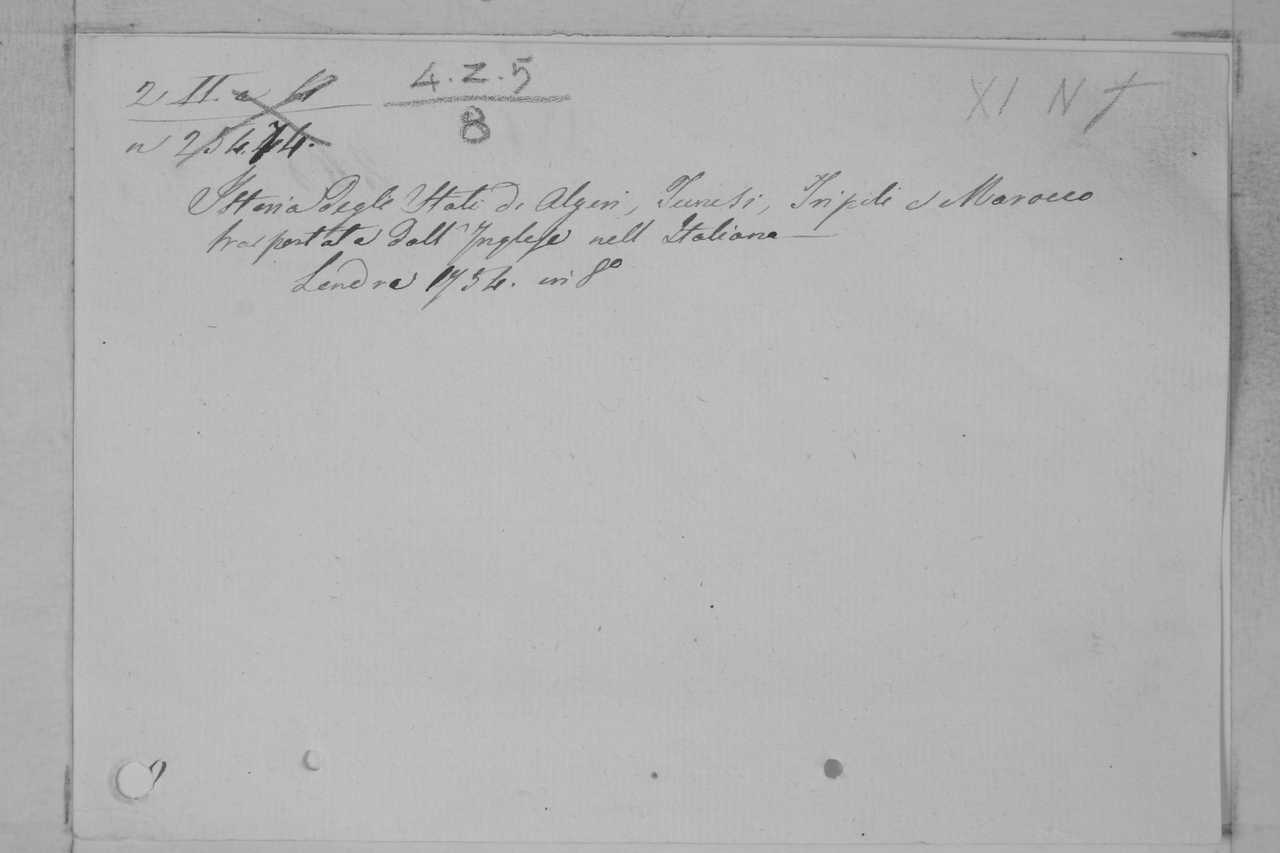 2 II. a
4.Z.5
8
XI N
n 25474.
Istoria degli Stati di Algeri, Tunisi, Tripoli e Marocco
trasportata dall' Inglese nell Italiano
Londra 1754. in 8°